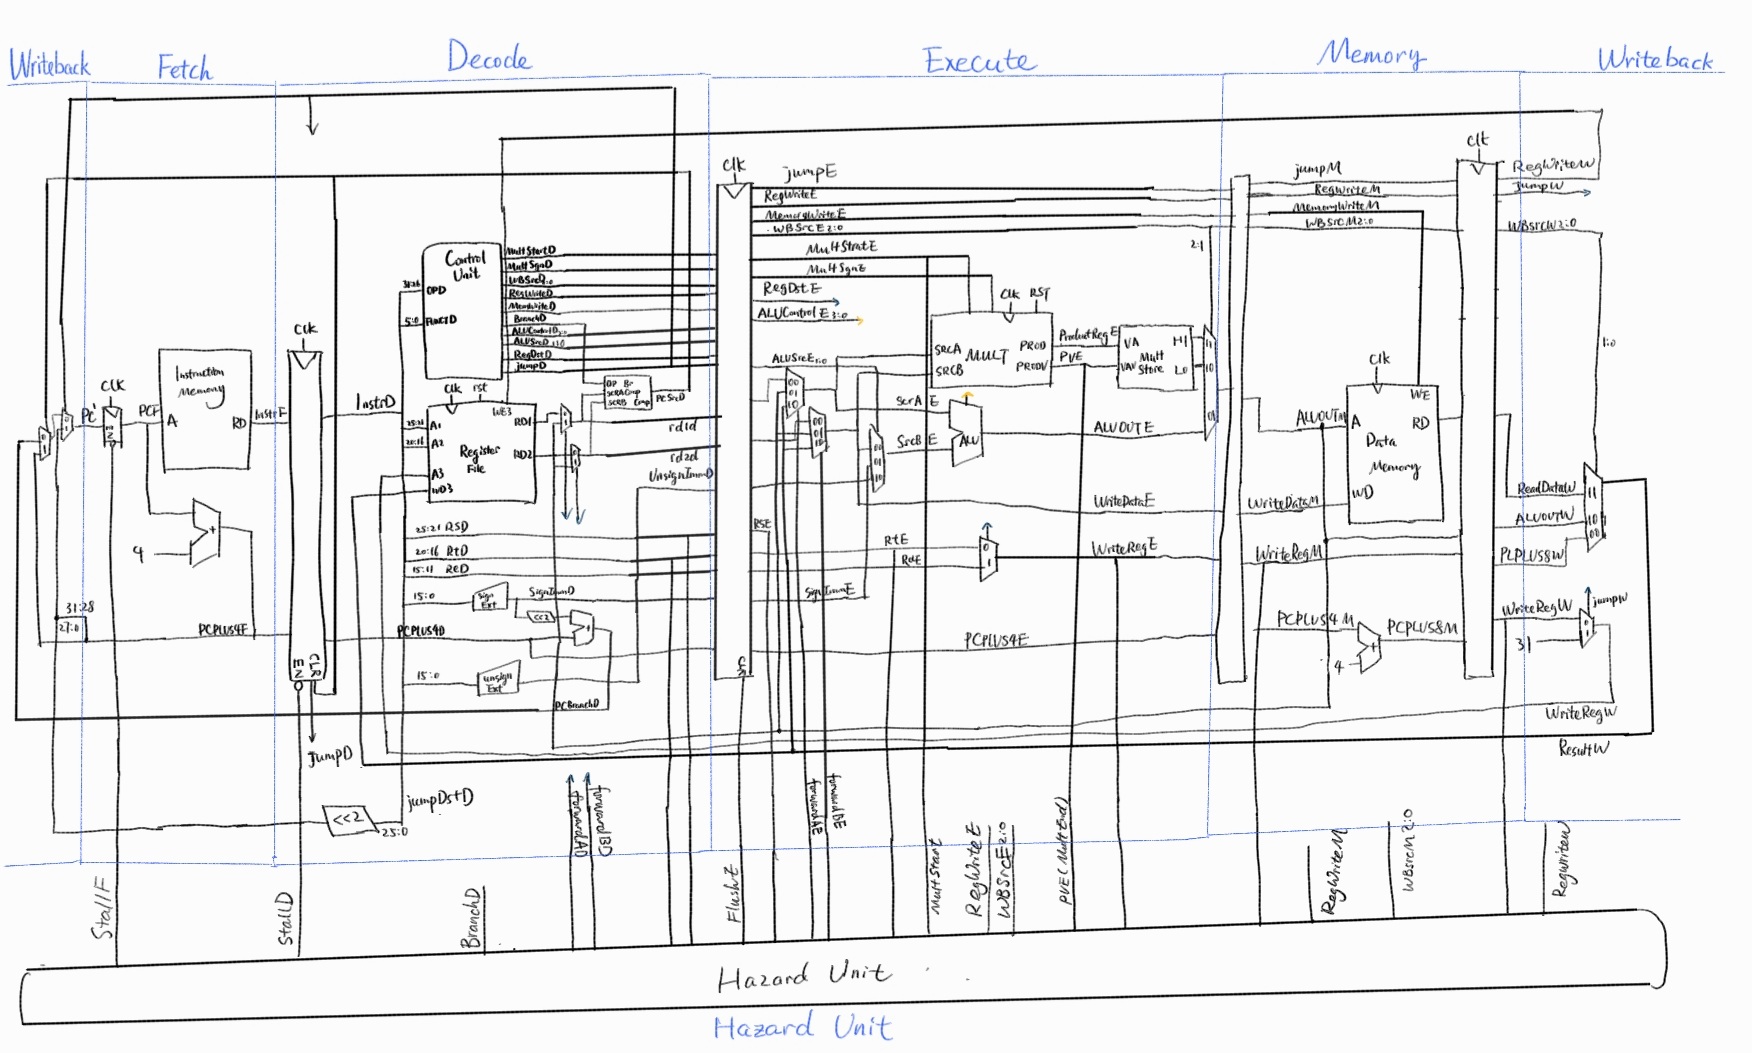 Writeback
Fetch
Decode
Execute
Memory
Writeback
PC'
Clk
EN
PCF
Instruction
Memory
A
RD
InstrF
4
+
31:28
27:0
PCPLUS4F
Clk
EN
CLR
InstrD
JumpD
<<2
25:0
jumpDstD
Control
Unit
31:26
OPD
5:0
FunctD
MultStartD
MultSgnD
RegWriteD
MemWriteD
BranchD
RegDstD
jumpD
Clk
rst
WE3
25:21
A1
20:16
A2
A3
WD3
Register
File
RD1
RD2
OP Br
PCSrcD
rd1d
rd2d
UnsignImmD
25:21 RSD
20:16 RtD
15:11 ReD
15:0
sign
Ext
SignImmD
<<2
+
PCPLUS4D
15:0
unsign
Ext
PCBranchD
Clk
CLR
jumpE
RegWriteE
MemoryWriteE
WBSrcE2:0
MultStratE
MultSgnE
RegDstE
ALUControlE3:0
ALUSrcE1:0
00
01
10
00
01
10
00
01
10
Clk
RST
SRCA
SRCB
MULT
PROD
PRODV
ProductRegE
PVE
VA
VAV
Mult
Store
HI
Lo
11
10
01
2:1
SrcA E
SrcB E
ALU
ALUOUTE
WriteDataE
RSE
RtE
RdE
0
1
WriteRegE
SignImmE
PCPLUS4E
jumpM
RegWriteM
MemoryWriteM
WBSrcM2:0
Clk
ALUOUTM
A
WE
RD
Data
Memory
WD
WriteDataM
WriteRegM
PCPLUS4M
4
+
PCPLUS8M
RegWriteW
JumpW
WBsrcW2:0
1:0
ReadDataW
ALUOUTW
PCPLUS8W
11
10
00
WriteRegW
jumpW
31
0
1
WriteRegW
ResultW
StallF
StallD
BranchD
forwardAD
forwardBD
FlushE
forwardAE
forwardBE
MultStart
RegWriteE
WBSrcE2:0
PVE(MultEnd)
RegWriteM
WBsrcM2:0
RegWriteW
Hazard Unit
Hazard Unit